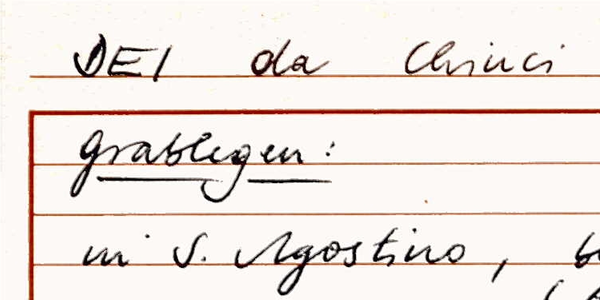 DEI da Chiuci
Grablegen:
in S. Agostino,